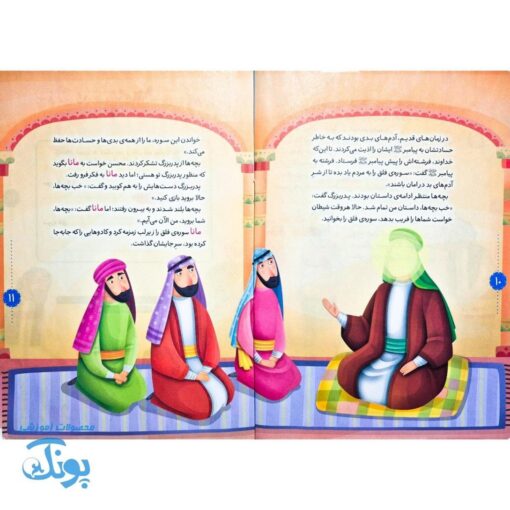 در زمان‌های قدیم، آدم‌های بدی بودند که به خاطر
حسادتشان به پیامبر ﷺ ایشان را اذیت می‌کردند. تا این‌که
خداوند، فرشته‌اش را پیش پیامبر ﷺ فرستاد. فرشته به
پیامبر ﷺ گفت: «سوره‌ی فلق را به مردم یاد بده تا از شر
آدم‌های بد در امان باشند.»
بچه‌ها منتظر ادامه‌ی داستان بودند. پدربزرگ گفت:
«خب بچه‌ها، داستان من تمام شد. حالا هر وقت شیطان
خواست شماها را فریب بدهد، سوره‌ی فلق را بخوانید.
۱۰
خواندن این سوره، ما را از همه‌ی بدی‌ها و حسادت‌ها حفظ
می‌کند.»
بچه‌ها از پدربزرگ تشکر کردند. محسن خواست به مانا بگوید
که منظور پدربزرگ تو هستی؛ اما دید مانا به فکر فرو رفت.
پدربزرگ دست‌هایش را به هم کوبید و گفت: «خب بچه‌ها،
حالا بروید بازی کنید.»
بچه‌ها بلند شدند و به بیرون رفتند؛ اما مانا گفت: «بچه‌ها،
شما بروید، من الآن می‌آیم.»
مانا سوره‌ی فلق را زیر لب زمزمه کرد و کادوهایی را که جابه‌جا
کرده بود، سر جایشان گذاشت.
۱۱
محصولات آموزشی
پونک